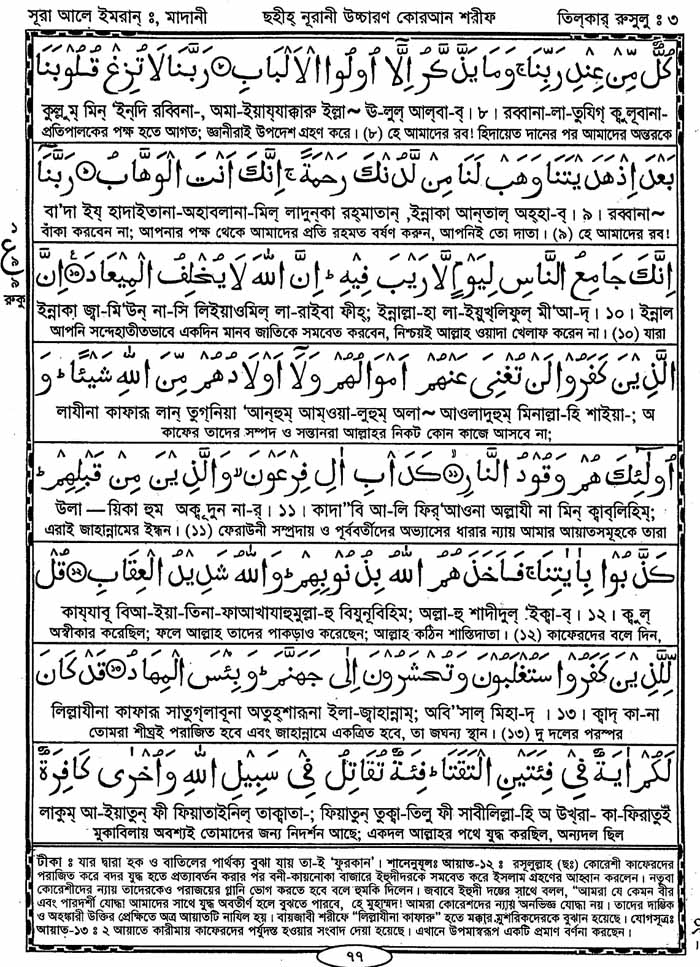 সূরা আলে ইমরান ঃ, মাদানী ছহীহ্ নূরানী উচ্চারণ কোরআন শরীফ তিল্‌কার্ রুসুলু ঃ ৩
كُلٌّ مِّنْ عِنْدِ رَبِّنَا ۚ وَمَا يَذَّكَّرُ إِلَّا أُولُوا الْأَلْبَابِ ۝٨ رَبَّنَا لَا تُزِغْ قُلُوبَنَا
কুল্লুম্ মিন্ 'ইন্‌দি রব্বিনা-, অমা-ইয়ায্‌যাক্কারু ইল্লা~ ঊ-লুল্ আল্‌বা-ব্। ৮। রব্বানা-লা-তুযিগ্ কুলূবানা-
প্রতিপালকের পক্ষ হতে আগত; জ্ঞানীরাই উপদেশ গ্রহণ করে। (৮) হে আমাদের রব! হিদায়েত দানের পর আমাদের অন্তরকে
بَعْدَ إِذْ هَدَيْتَنَا وَهَبْ لَنَا مِنْ لَّدُنْكَ رَحْمَةً ۚ إِنَّكَ أَنْتَ الْوَهَّابُ ۝٩ رَبَّنَا
বা'দা ইয্ হাদাইতানা-অহাবলানা-মিল্ লাদুন্‌কা রহ্‌মাতান্ ,ইন্নাকা আন্‌তাল্ অহ্‌হা-ব্। ৯। রব্বানা~
বাঁকা করবেন না; আপনার পক্ষ থেকে আমাদের প্রতি রহমত বর্ষণ করুন, আপনিই তো দাতা। (৯) হে আমাদের রব!
إِنَّكَ جَامِعُ النَّاسِ لِيَوْمٍ لَّا رَيْبَ فِيهِ ۚ إِنَّ اللهَ لَا يُخْلِفُ الْمِيعَادَ ۝١٠ إِنَّ
রুকু
ইন্নাকা জ্বা-মি'উন্ না-সি লিইয়াওমিল্ লা-রাইবা ফীহ্; ইন্নাল্লা-হা লা-ইয়ুখ্‌লিফুল্ মী'আ-দ্। ১০। ইন্নাল
আপনি সন্দেহাতীতভাবে একদিন মানব জাতিকে সমবেত করবেন, নিশ্চয়ই আল্লাহ ওয়াদা খেলাফ করেন না। (১০) যারা
الَّذِينَ كَفَرُوا لَنْ تُغْنِيَ عَنْهُمْ أَمْوَالُهُمْ وَلَا أَوْلَادُهُمْ مِّنَ اللهِ شَيْئًا ۚ وَ
লাযীনা কাফারূ লান্ তুগ্‌নিয়া 'আন্‌হুম্ আম্‌ওয়া-লুহুম্ অলা~ আওলাদুহুম্ মিনাল্লা-হি শাইয়া-; অ
কাফের তাদের সম্পদ ও সন্তানরা আল্লাহর নিকট কোন কাজে আসবে না;
أُولَٰئِكَ هُمْ وَقُودُ النَّارِ ۝١١ كَدَأْبِ آلِ فِرْعَوْنَ ۙ وَالَّذِينَ مِنْ قَبْلِهِمْ ۚ
উলা —য়িকা হুম অক্বূদুন না-র্। ১১। কাদা"বি আ-লি ফির্'আওনা অল্লাযী না মিন্ ক্বাব্‌লিহিম্;
এরাই জাহান্নামের ইন্ধন। (১১) ফেরাউনী সম্প্রদায় ও পূর্ববর্তীদের অভ্যাসের ধারার ন্যায় আমার আয়াতসমূহকে তারা
كَذَّبُوا بِآيَاتِنَا ۚ فَأَخَذَهُمُ اللهُ بِذُنُوبِهِمْ ۚ وَاللهُ شَدِيدُ الْعِقَابِ ۝١٢ قُلْ
কায্‌যাবূ বিআ-ইয়া-তিনা-ফাআখাযাহুমুল্লা-হু বিযুনূবিহিম্; অল্লা-হু শাদীদুল্ 'ইক্বা-ব্। ১২। কুল্
অস্বীকার করেছিল; ফলে আল্লাহ তাদের পাকড়াও করেছেন; আল্লাহ কঠিন শাস্তিদাতা। (১২) কাফেরদের বলে দিন,
لِّلَّذِينَ كَفَرُوا سَتُغْلَبُونَ وَتُحْشَرُونَ إِلَىٰ جَهَنَّمَ ۚ وَبِئْسَ الْمِهَادُ ۝١٣ قَدْ كَانَ
লিল্লাযীনা কাফারূ সাতুগ্‌লাবূনা অতুহ্‌শারূনা ইলা-জ্বাহান্নাম্; অবি"সাল্ মিহা-দ্ । ১৩। ক্বাদ্ কা-না
তোমরা শীঘ্রই পরাজিত হবে এবং জাহান্নামে একত্রিত হবে, তা জঘন্য স্থান। (১৩) দু দলের পরস্পর
لَكُمْ آيَةٌ فِي فِئَتَيْنِ الْتَقَتَا ۚ فِئَةٌ تُقَاتِلُ فِي سَبِيلِ اللهِ وَأُخْرَىٰ كَافِرَةٌ
লাকুম্ আ-ইয়াতুন্ ফী ফিয়াতাইনিল্ তাক্বাতা-; ফিয়াতুন্ তুক্বা-তিলু ফী সাবীলিল্লা-হি অ উখ্‌রা- কা-ফিরাতুইঁ
মুকাবিলায় অবশ্যই তোমাদের জন্য নিদর্শন আছে; একদল আল্লাহর পথে যুদ্ধ করছিল, অন্যদল ছিল
টীকা ঃ যার দ্বারা হক ও বাতিলের পার্থক্য বুঝা যায় তা-ই 'ফুরকান'। শানেনুযূলঃ আয়াত-১২ ঃ রসূলুল্লাহ (ছঃ) কোরেশী কাফেরদের
পরাজিত করে বদর যুদ্ধ হতে প্রত্যাবর্তন করার পর বনী-কায়নোকা বাজারে ইহুদীদেরকে সমবেত করে ইসলাম গ্রহণের আহ্বান করলেন। নতুবা
কোরেশীদের ন্যায় তাদেরকেও পরাজয়ের গ্লানি ভোগ করতে হবে বলে হুমকি দিলেন। জবাবে ইহুদী দম্ভের সাথে বলল, "আমরা যে কেমন বীর
এবং পারদর্শী যোদ্ধা আমাদের সাথে যুদ্ধ অবতীর্ণ হলে বুঝতে পারবে, হে মুহাম্মদ! আমরা কোরেশদের ন্যায় অনভিজ্ঞ যোদ্ধা নয়। তাদের দাম্ভিক
ও অহংকারী উক্তির প্রেক্ষিতে অত্র আয়াতটি নাযিল হয়। বায়জাবী শরীফে "লিল্লাযীনা কাফারূ" হতে মক্কার মুশরিকদেরকে বুঝান হয়েছে। যোগসূত্রঃ
আয়াত-১৩ ঃ ২ আয়াতে কারীমায় কাফেরদের পর্যুদস্ত হওয়ার সংবাদ দেয়া হয়েছে। এখানে উপমাস্বরূপ একটি প্রমাণ বর্ণনা করছেন।
৭৭